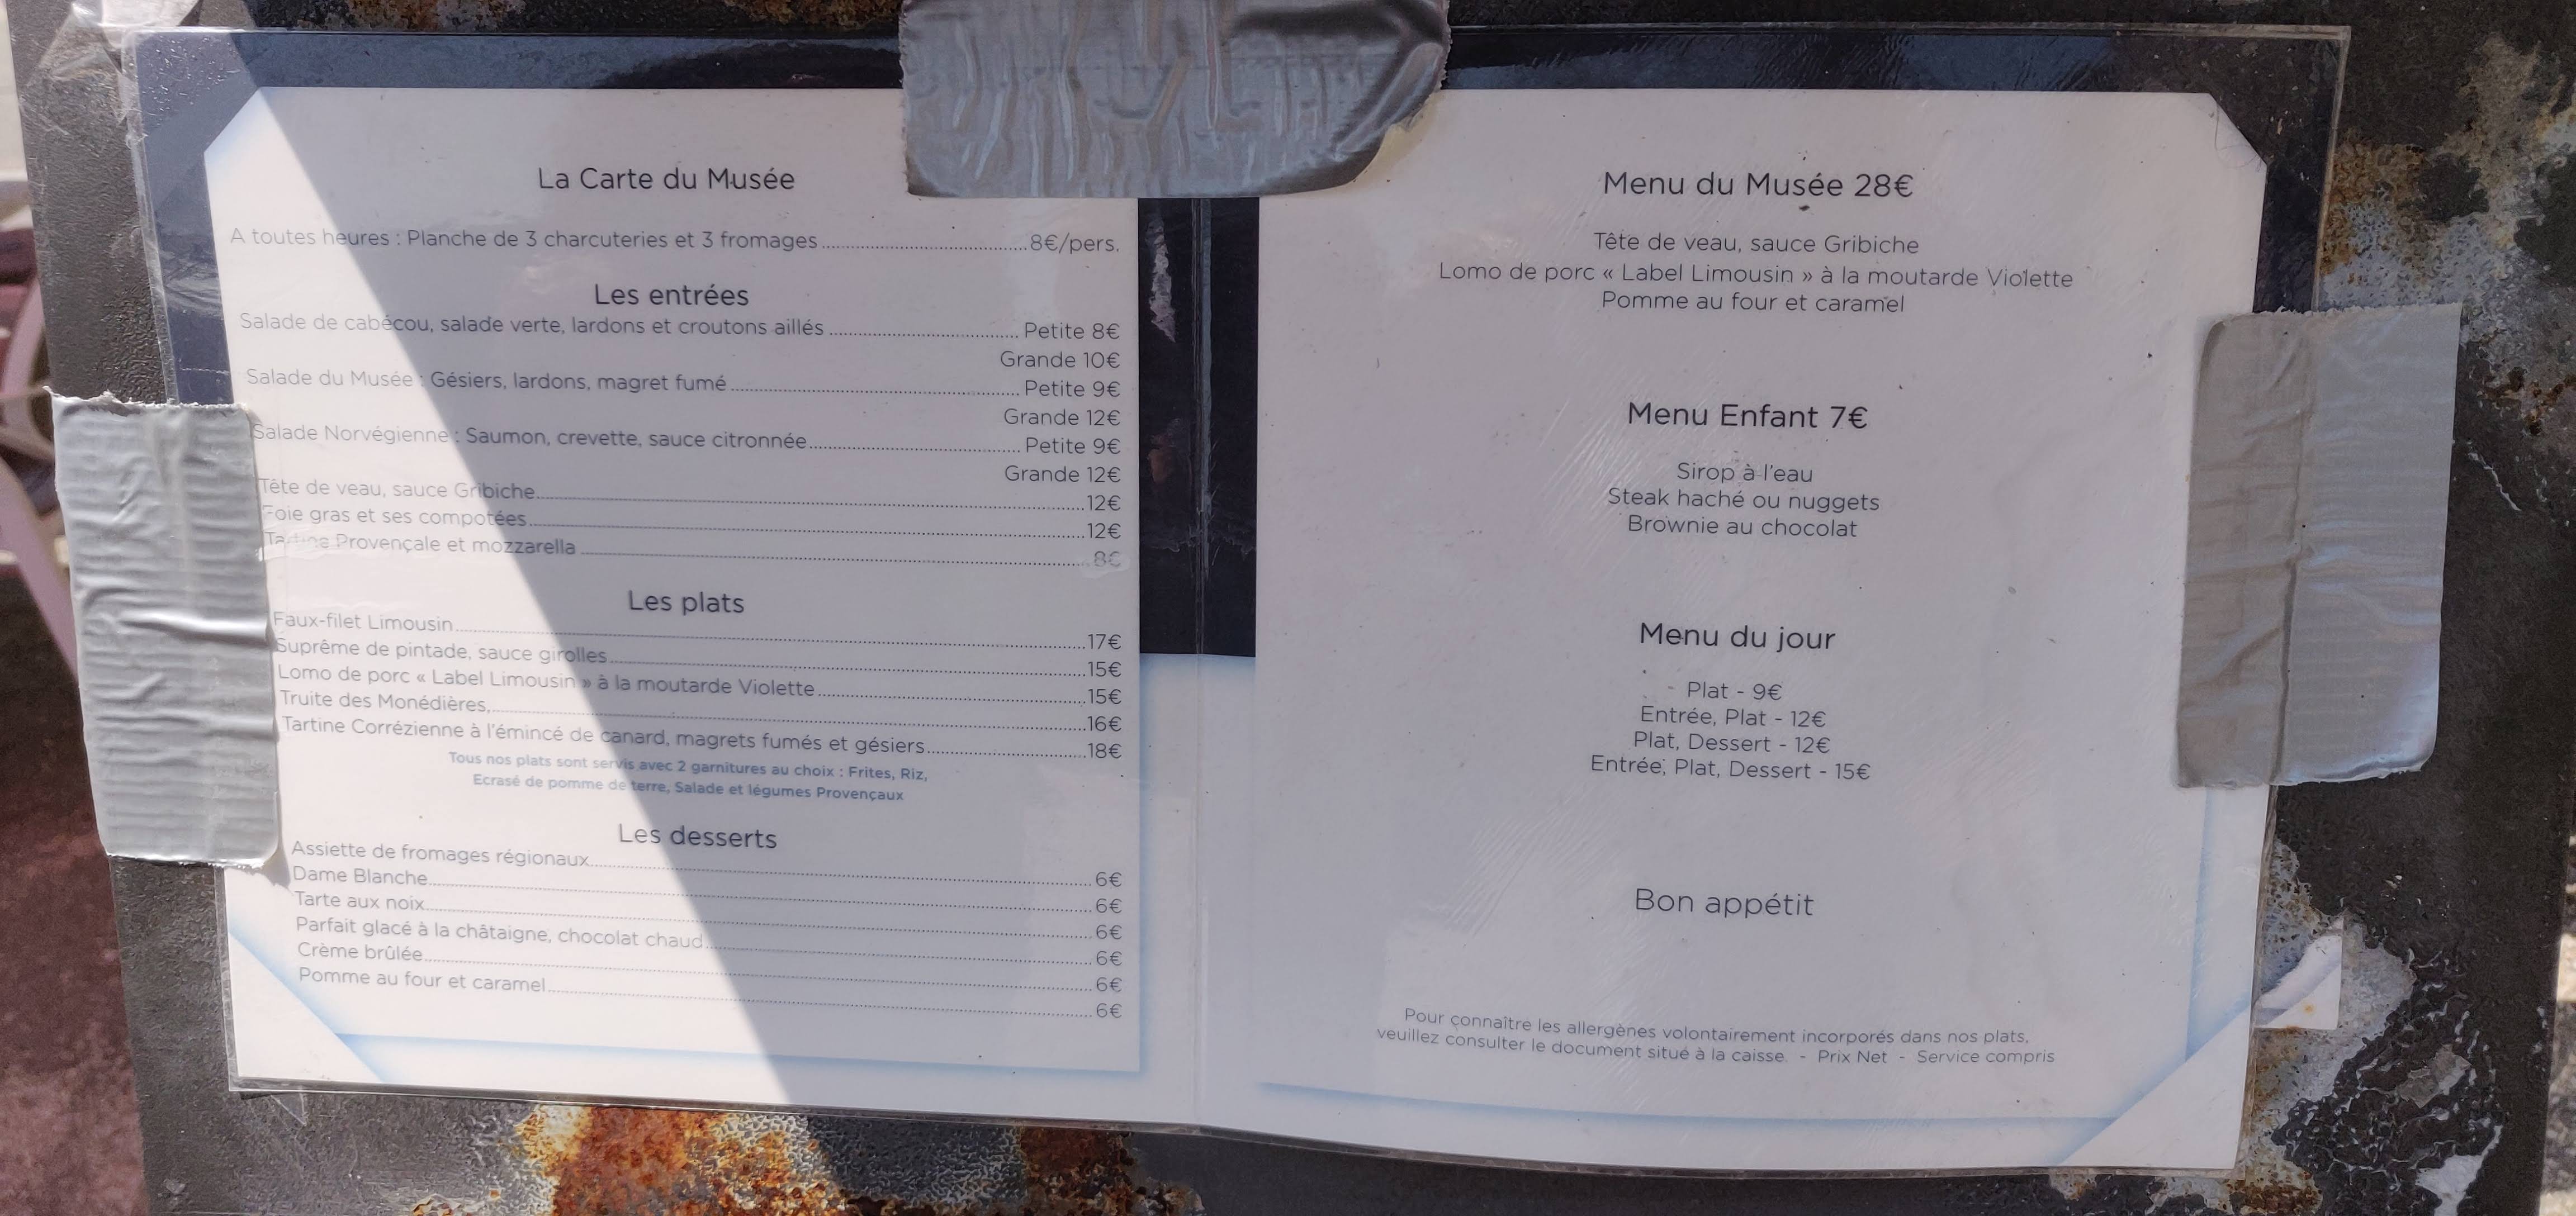 La Carte du Musée
A toutes heures : Planche de 3 charcuteries et 3 fromages ........ 8€/pers.
Les entrées
Salade de cabécou, salade verte, lardons et croutons aillés ........ Petite 8€
Grande 10€
Salade du Musée : Gésiers, lardons, magret fumé ........ Petite 9€
Grande 12€
Salade Norvégienne : Saumon, crevette, sauce citronnée ........ Petite 9€
Grande 12€
Tête de veau, sauce Gribiche ........ 12€
Foie gras et ses compotées ........ 12€
Tartine Provençale et mozzarella ........ 8€
Les plats
Faux-filet Limousin ........ 17€
Suprême de pintade, sauce girolles ........ 15€
Lomo de porc « Label Limousin » à la moutarde Violette ........ 15€
Truite des Monédières, ........ 16€
Tartine Corrézienne à l'émincé de canard, magrets fumés et gésiers ........ 18€
Tous nos plats sont servis avec 2 garnitures au choix : Frites, Riz,
Ecrasé de pomme de terre, Salade et légumes Provençaux
Les desserts
Assiette de fromages régionaux ........ 6€
Dame Blanche ........ 6€
Tarte aux noix ........ 6€
Parfait glacé à la châtaigne, chocolat chaud ........ 6€
Crème brûlée ........ 6€
Pomme au four et caramel ........ 6€
Menu du Musée 28€
Tête de veau, sauce Gribiche
Lomo de porc « Label Limousin » à la moutarde Violette
Pomme au four et caramel
Menu Enfant 7€
Sirop à l'eau
Steak haché ou nuggets
Brownie au chocolat
Menu du jour
Plat - 9€
Entrée, Plat - 12€
Plat, Dessert - 12€
Entrée, Plat, Dessert - 15€
Bon appétit
Pour connaître les allergènes volontairement incorporés dans nos plats,
veuillez consulter le document situé à la caisse. - Prix Net - Service compris